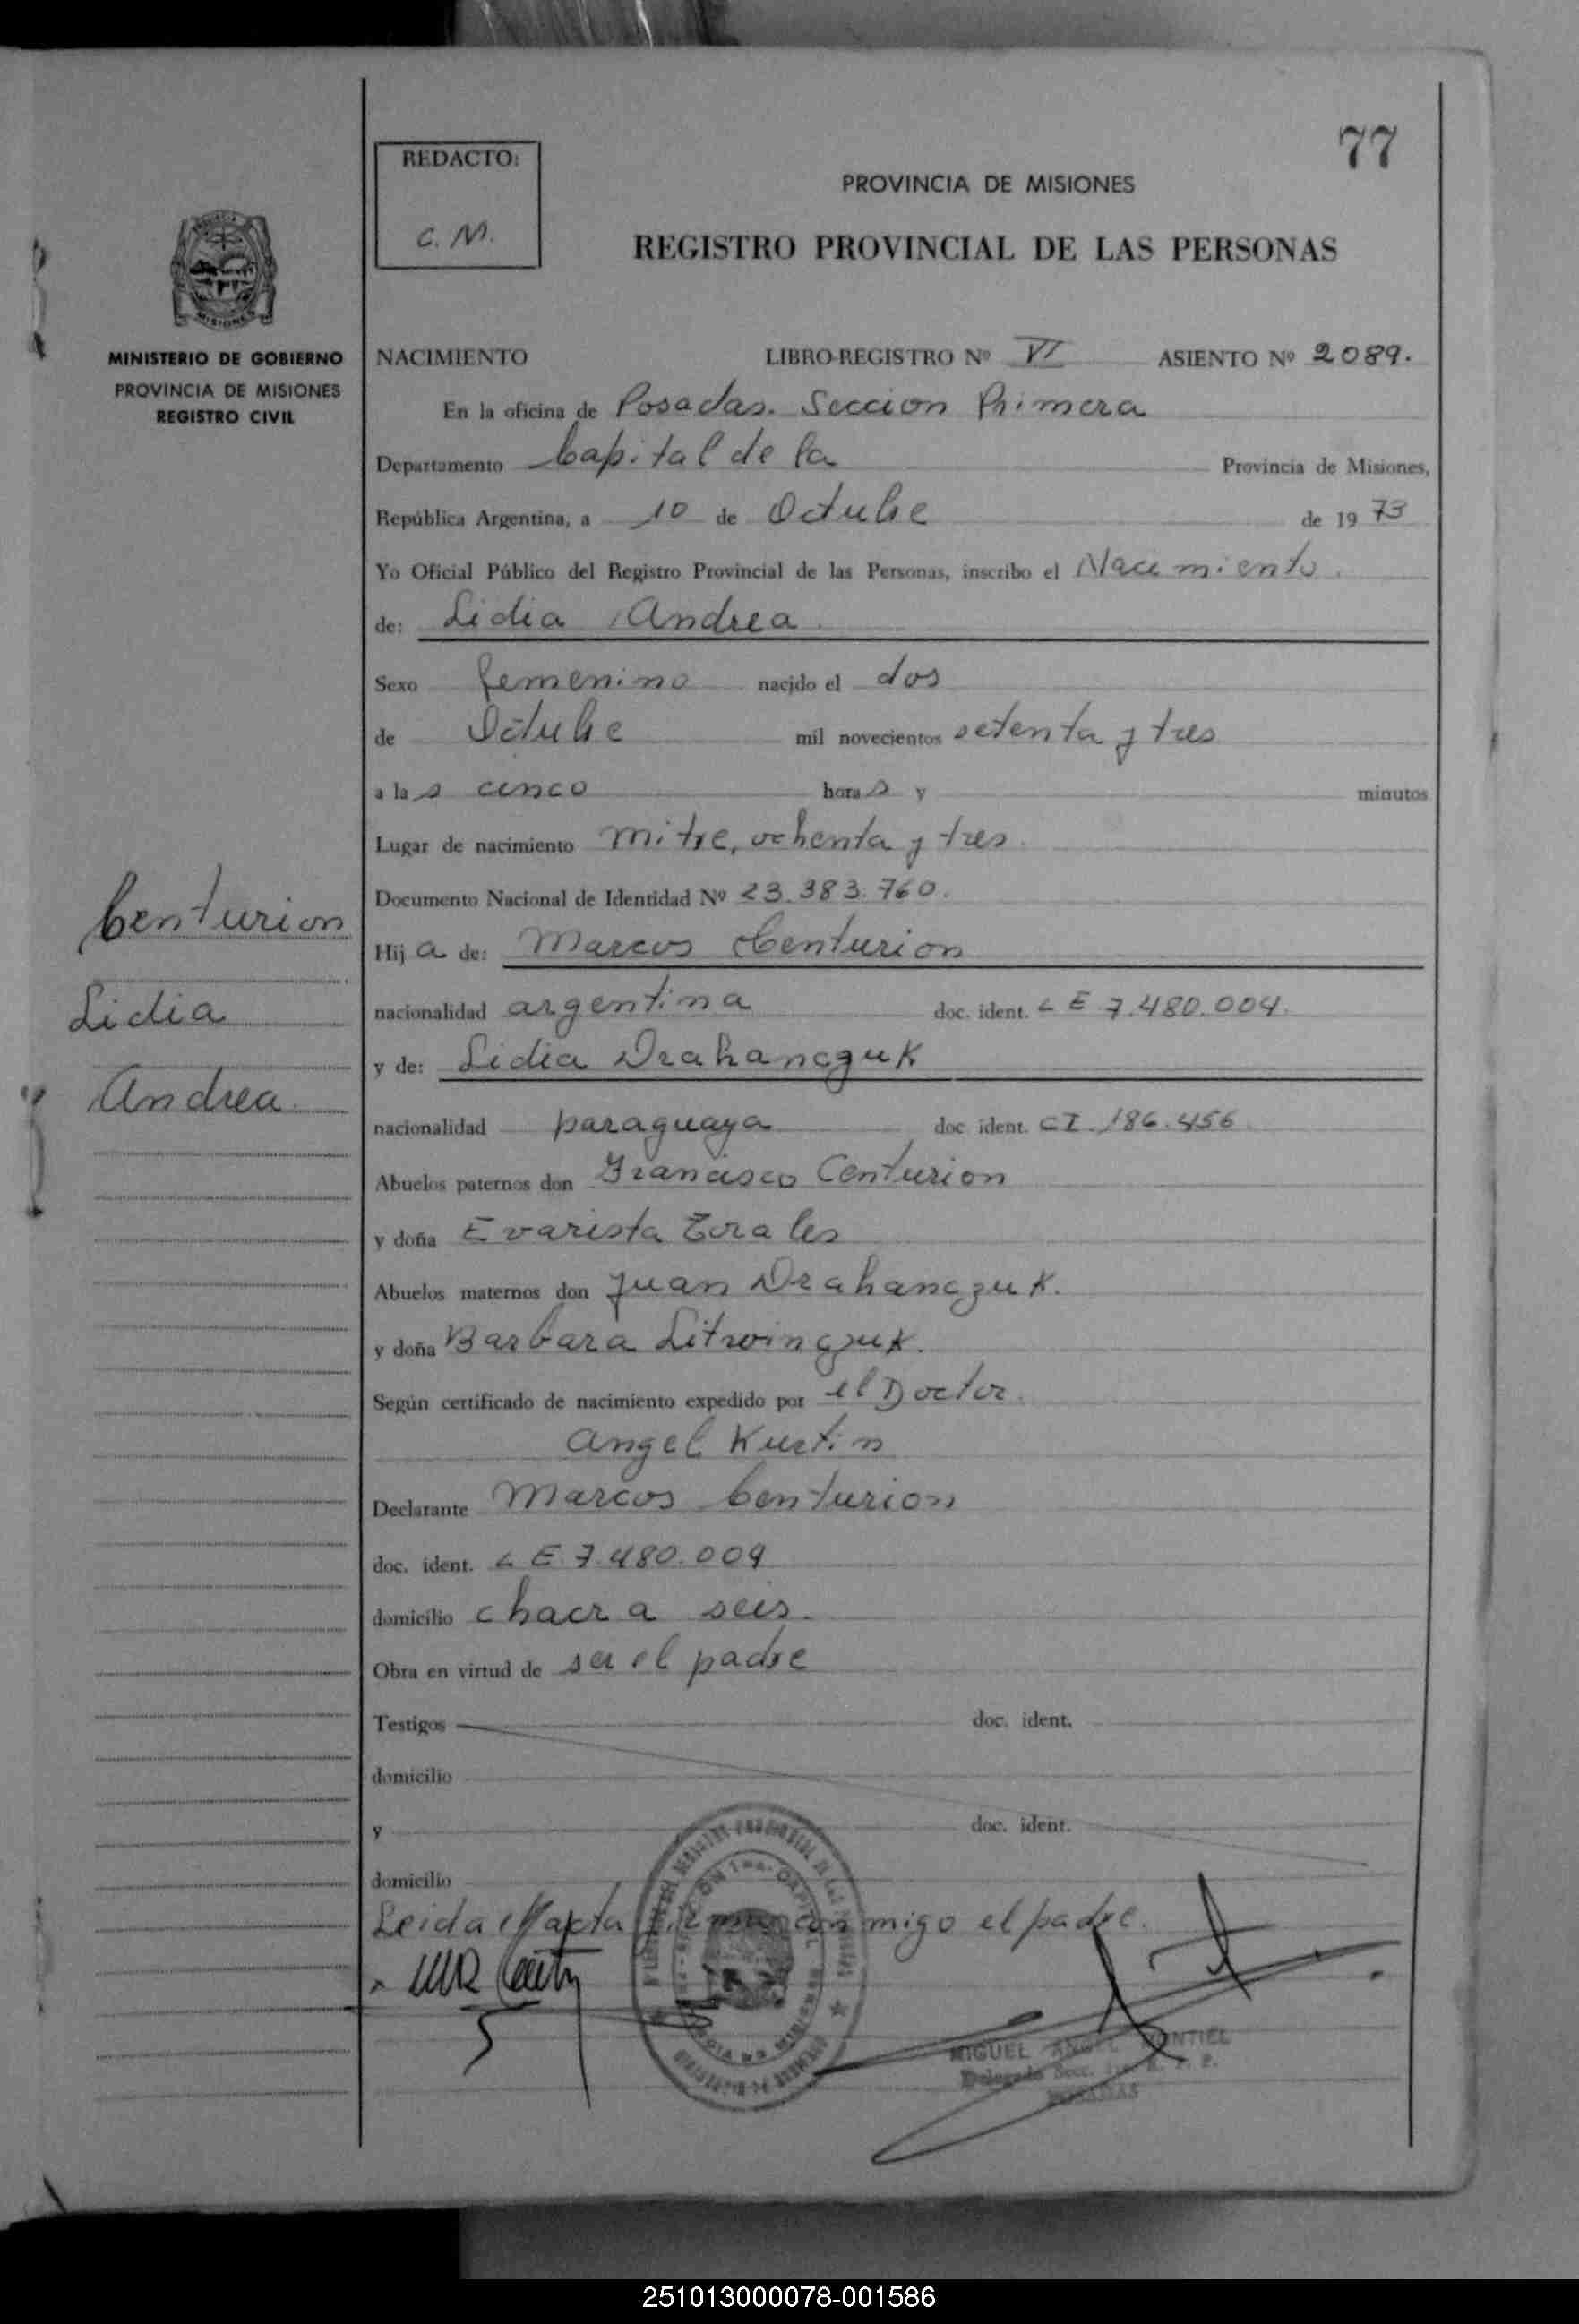 77
REDACTO:
C. M.
PROVINCIA DE MISIONES
REGISTRO PROVINCIAL DE LAS PERSONAS
MISIONES
MINISTERIO DE GOBIERNO
PROVINCIA DE MISIONES
REGISTRO CIVIL
NACIMIENTO LIBRO-REGISTRO Nº VI ASIENTO Nº 2089.
En la oficina de Posadas. Seccion Primera
Departamento Capital de la Provincia de Misiones,
República Argentina, a 10 de Octubre de 1973
Yo Oficial Público del Registro Provincial de las Personas, inscribo el Nacimiento.
de: Lidia Andrea.
Sexo femenino nacido el dos
de Octubre mil novecientos setenta y tres
a las cinco horas y minutos
Lugar de nacimiento mitre, ochenta y tres.
Documento Nacional de Identidad Nº 23.383.760.
Centurion
Lidia
Andrea.
Hija de: Marcos Centurion
nacionalidad argentina doc. ident. L E 7.480.004.
y de: Lidia Drahanczuk
nacionalidad paraguaya doc ident. CI. 186.456.
Abuelos paternos don Francisco Centurion
y doña Evarista Torales
Abuelos maternos don Juan Drahanczuk.
y doña Barbara Litwinczuk.
Según certificado de nacimiento expedido por el Doctor.
Angel Kurtin
Declarante Marcos Centurion
doc. ident. L E. 7.480.009
domicilio chacra seis.
Obra en virtud de ser el padre
Testigos doc. ident.
domicilio
y doc. ident.
domicilio
Leida el acta firma conmigo el padre.
MIGUEL ANGEL MONTIEL
Delegado Secc. R. P. P.
POSADAS
251013000078-001586